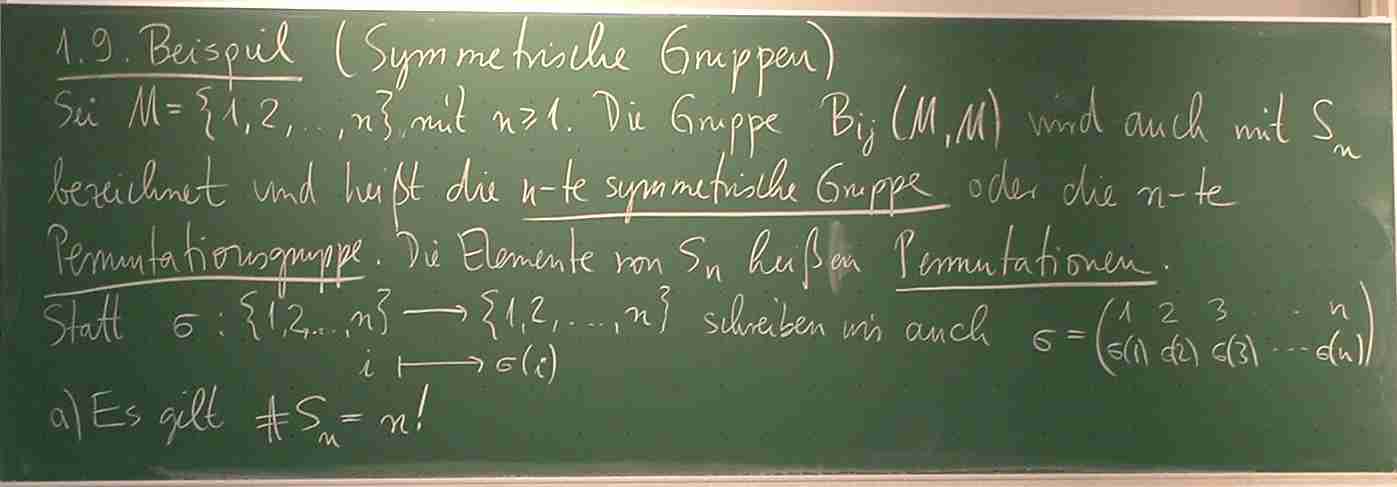 1.9. Beispiel (Symmetrische Gruppen)
Sei M = {1,2,..,n}, mit n ≥ 1. Die Gruppe Bij (M,M) wird auch mit Sₙ
bezeichnet und heißt die n-te symmetrische Gruppe oder die n-te
Permutationsgruppe. Die Elemente von Sₙ heißen Permutationen.
Statt σ : {1,2,...,n} ⟶ {1,2,...,n} schreiben wir auch σ = (1 2 3 ... n
i ⟼ σ(i) σ(1) σ(2) σ(3) ... σ(n))
a) Es gilt #Sₙ = n!